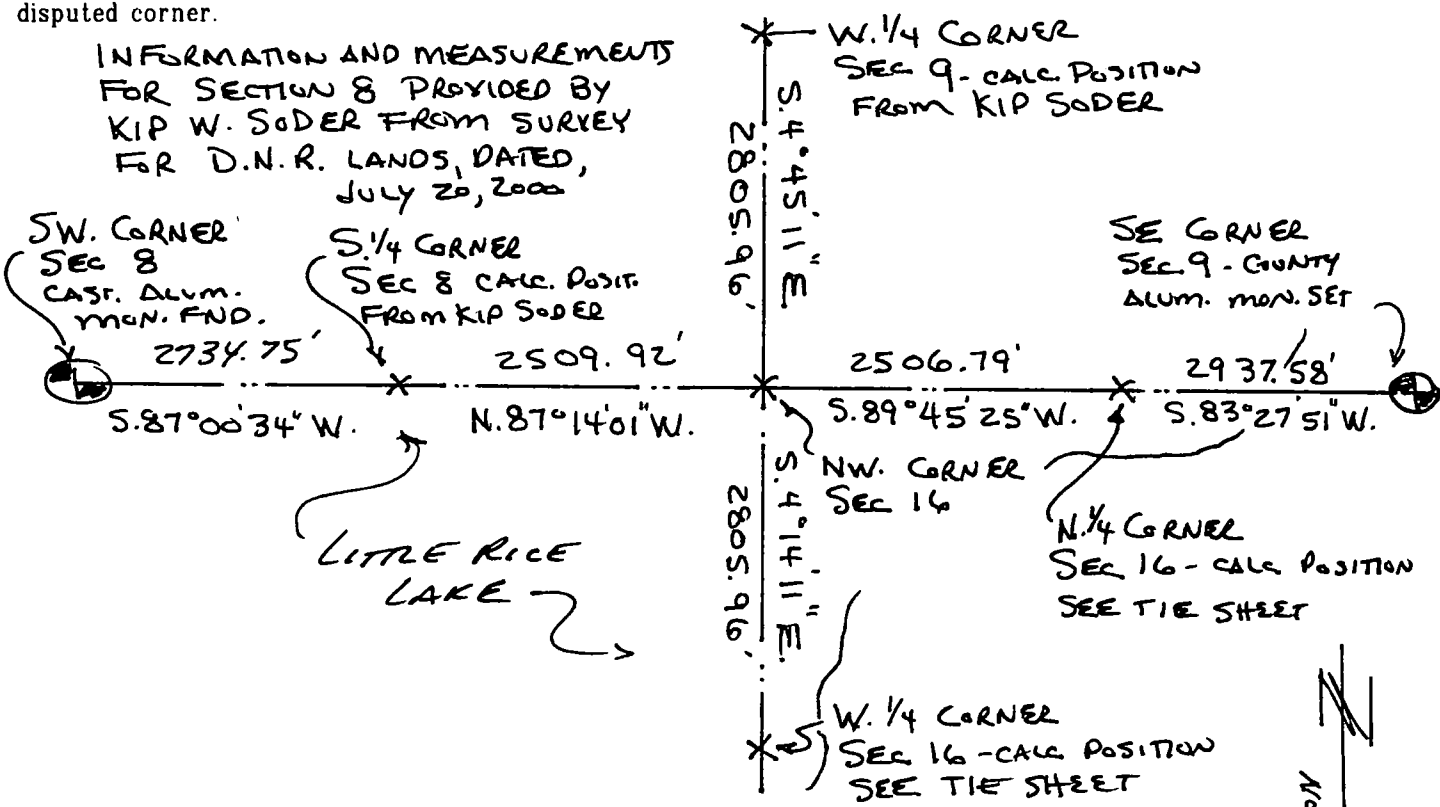 disputed corner.
INFORMATION AND MEASUREMENTS
FOR SECTION 8 PROVIDED BY
KIP W. SODER FROM SURVEY
FOR D.N.R. LANDS, DATED,
JULY 20, 2000
W. 1/4 CORNER
SEC 9 - CALC. POSITION
FROM KIP SODER
S. 4° 45' 11" E.
2805.96'
SW. CORNER
SEC 8
CAST. ALUM.
MON. FND.
S. 1/4 CORNER
SEC 8 CALC. POSIT.
FROM KIP SODER
SE CORNER
SEC. 9 - COUNTY
ALUM. MON. SET
2734.75'
2509.92'
2506.79'
2937.58'
S.87°00'34" W.
N.87°14'01" W.
S.89°45'25" W.
S.83°27'51" W.
NW. CORNER
SEC 16
S. 4° 14' 11" E.
2805.96'
N. 1/4 CORNER
SEC 16 - CALC POSITION
SEE TIE SHEET
LITTLE RICE
LAKE
W. 1/4 CORNER
SEC 16 - CALC POSITION
SEE TIE SHEET
N